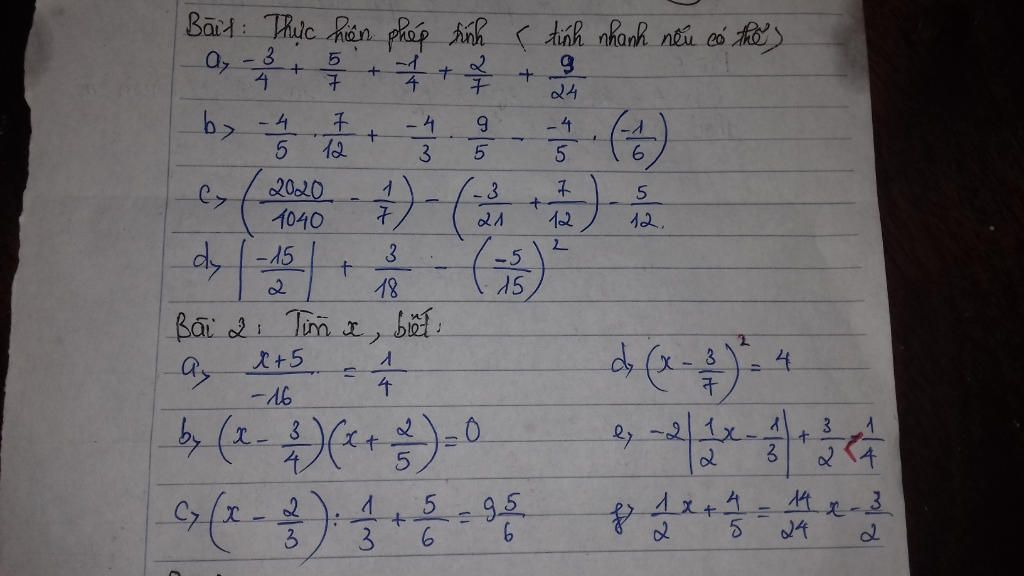 Bài 1: Thực hiện pháp tính ( tính nhanh nếu có thể)
a, -3/4 + 5/7 + -1/4 + 2/7 + 9/24
b> -4/5 . 7/12 + -4/3 . 9/5 - -4/5 . (-1/6)
c> (2020/1040 - 1/7) - (-3/21 + 7/12) - 5/12.
d, |-15/2| + 3/18 - (-5/15)²
Bài 2: Tìm x, biết:
a> x+5/-16 = 1/4 d, (x - 3/7)² = 4
b, (x - 3/4)(x + 2/5) = 0 e, -2|1/2x - 1/3| + 3/2 < 1/4
c> (x - 2/3) : 1/3 + 5/6 = 9 5/6 g> 1/2x + 4/5 = 14/24 x - 3/2